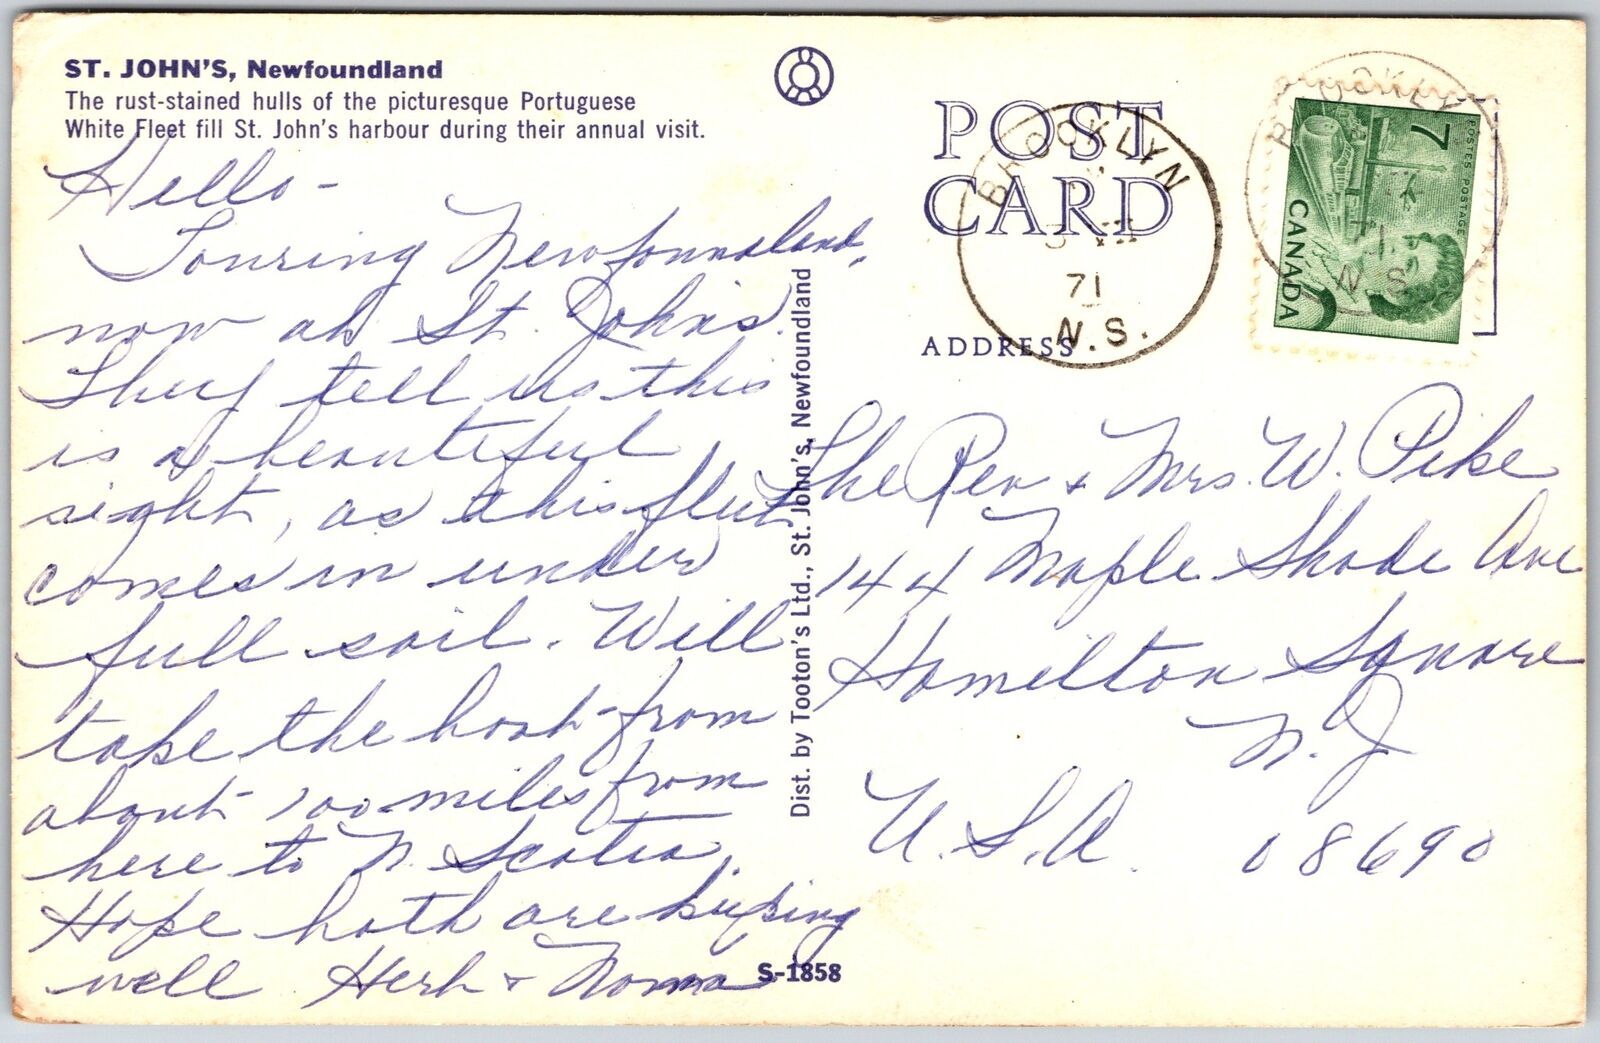 ST. JOHN'S, Newfoundland
The rust-stained hulls of the picturesque Portuguese
White Fleet fill St. John's harbour during their annual visit.
Hello -
Touring Newfounnaland,
now at St. Johns.
They tell us this
is a beautiful
sight, as this fleet
comes in under
full sail. Will
take the boat from
about 100 miles from
here to N. Scotia.
Hope both are keeping
well Herb + Norma
S-1858
Dist. by Tooton's Ltd., St. John's, Newfoundland
POST
CARD
ADDRESS
BROOKLYN
71
N.S.
BROOKLYN
71
N.S.
7
POSTES POSTAGE
CANADA
The Rev + Mrs. W. Pike
144 Maple Shade Ave
Hamilton Square
N.J
U.S.A. 08690